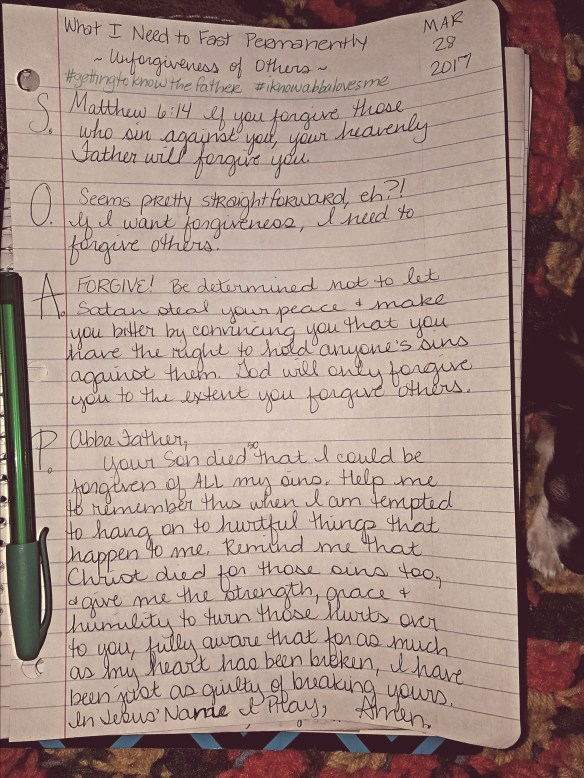 What I Need to Fast Permanently
MAR
28
2017
~ Unforgiveness of Others ~
#gettingtoknowthefather #iknowabbalovesme
S. Matthew 6:14 If you forgive those
who sin against you, your heavenly
Father will forgive you.
O. Seems pretty straightforward, eh?!
If I want forgiveness, I need to
forgive others.
A. FORGIVE! Be determined not to let
Satan steal your peace & make
you bitter by convincing you that you
have the right to hold anyone's sins
against them. God will only forgive
you to the extent you forgive others.
P. Abba Father,
Your Son died so that I could be
forgiven of ALL my sins. Help me
to remember this when I am tempted
to hang on to hurtful things that
happen to me. Remind me that
Christ died for those sins too,
& give me the strength, grace &
humility to turn those hurts over
to you, fully aware that for as much
as my heart has been broken, I have
been just as guilty of breaking yours.
In Jesus' Name I Pray, Amen.